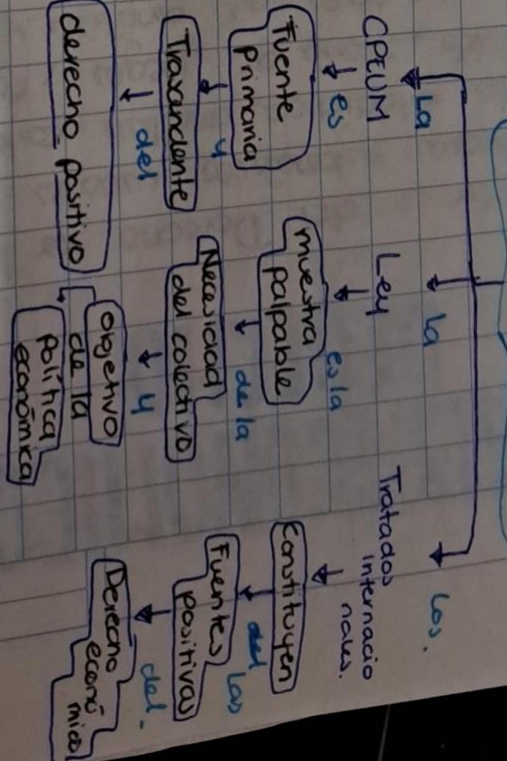 La
CPEUM
es
Fuente
Primaria
y
Traxandente
del
derecho positivo
la
Ley
es la
muestra
palpable
de la
Necesidad
del colectivo
y
Objetivo
de la
Política
económica
Los.
Tratados
internacio
nales.
Constituyen
las
Fuentes
positivas
del.
Derecho
econó
mico